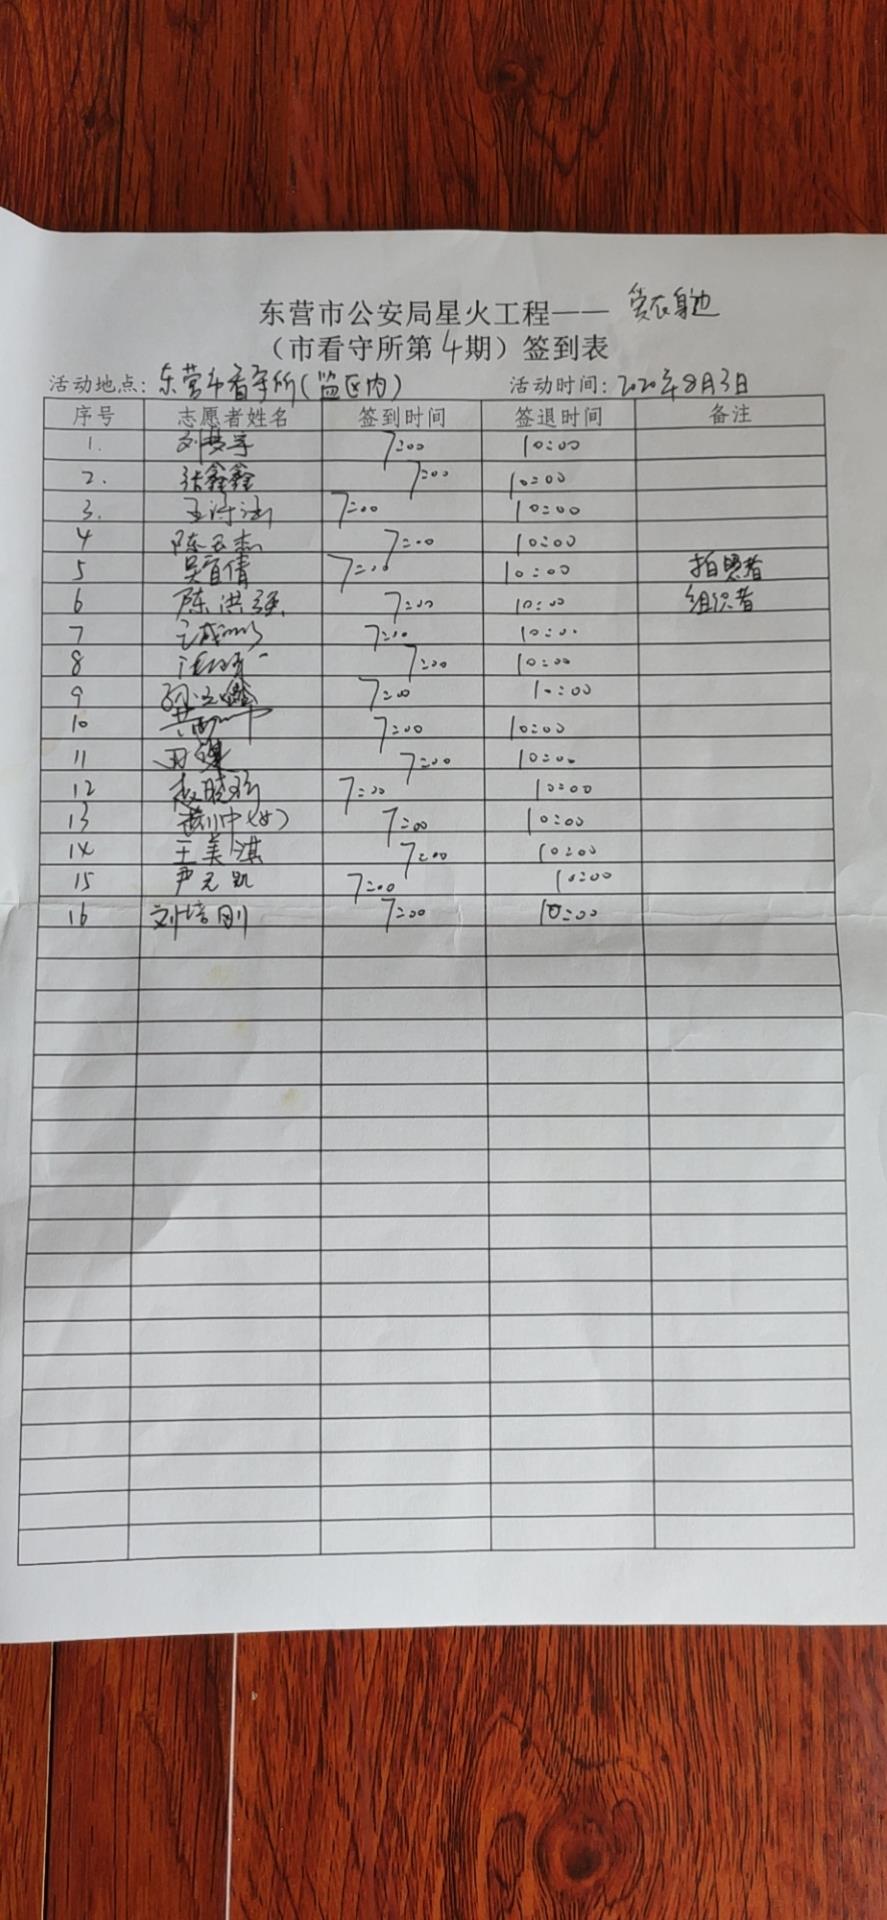 东营市公安局星火工程——
（市看守所第4期）签到表
活动地点：东营市看守所(监区内) 活动时间：2020年8月3日
序号 志愿者姓名 签到时间 签退时间 备注
1. 7:00 10:00
2. 张鑫鑫 7:00 10:00
3. 7:00 10:00
4 7:00 10:00
5 7:00 10:00 拍照者
6 陈洪强 7:00 10:00 组织者
7 7:00 10:00
8 7:00 10:00
9 7:00 10:00
10 7:00 10:00
11 7:00 10:00
12 7:00 10:00
13 7:00 10:00
14 王美淇 7:00 10:00
15 尹元凯 7:00 10:00
16 刘培刚 7:00 10:00